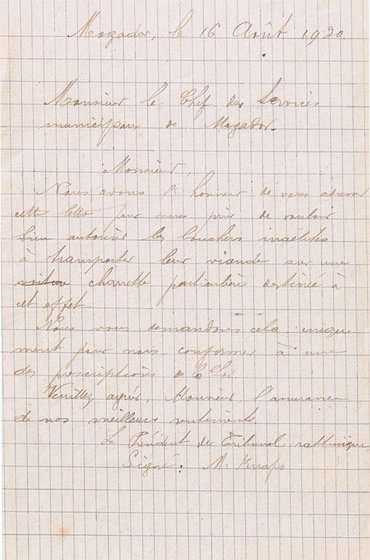 Mogador, le 16 Août 1920
Monsieur le Chef des Services
municipaux de Mogador.
Monsieur,
Nous avons l'honneur de vous adresser
cette lettre pour vous prier de vouloir
bien autoriser les bouchers israélites
à transporter leur viande sur une
voiture charrette particulière destinée à
cet effet.
Nous vous demandons cela unique
ment pour nous conformer à une
des prescriptions de la
Veuillez agréer, Monsieur, l'assurance
de nos meilleurs sentiments
Le Président du Tribunal rabbinique
Signé: M. Knafo